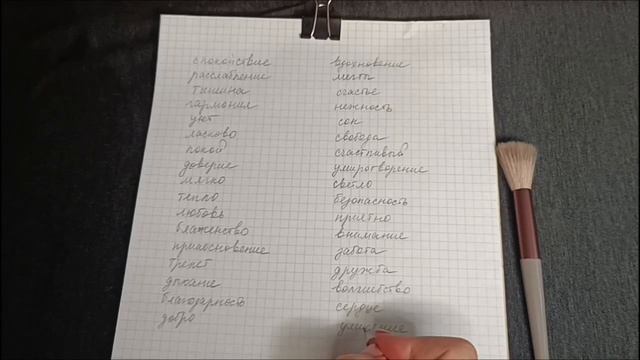 спокойствие
расслабление
тишина
гармония
уют
ласково
покой
доверие
мягко
тепло
любовь
блаженство
прикосновение
трепет
дыхание
благодарность
добро
вдохновение
мечты
счастье
нежность
сон
свобода
счастливый
умиротворение
светло
безопасность
приятно
внимание
забота
дружба
волшебство
сердце